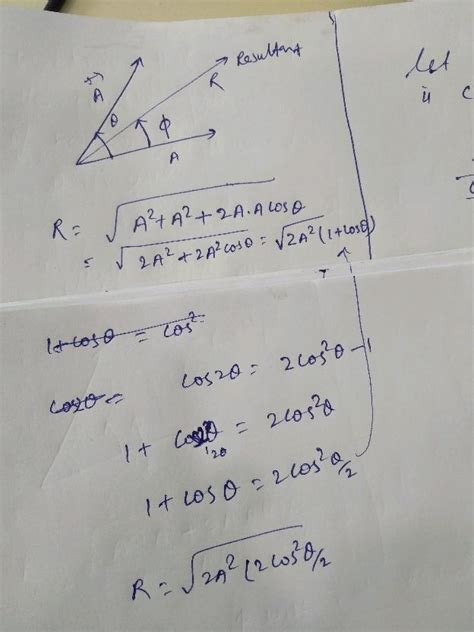 Resultant
A
θ
R
φ
A
let
is c
R = √A²+A²+2A.A cosθ
= √2A²+2A²cosθ = √2A²(1+cosθ)
1+cosθ = cos²
cos2θ =
cos2θ = 2cos²θ-1
1 + cos2θ = 2cos²θ
1+cosθ = 2cos²θ/2
R = √2A²(2cos²θ/2